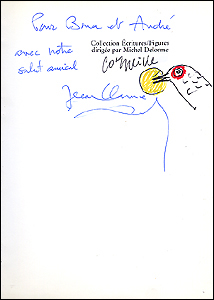 Pour Bona et André
avec notre
salut amical
Collection Écritures/Figures
dirigée par Michel Delorme
Corneille
Jean Clarence